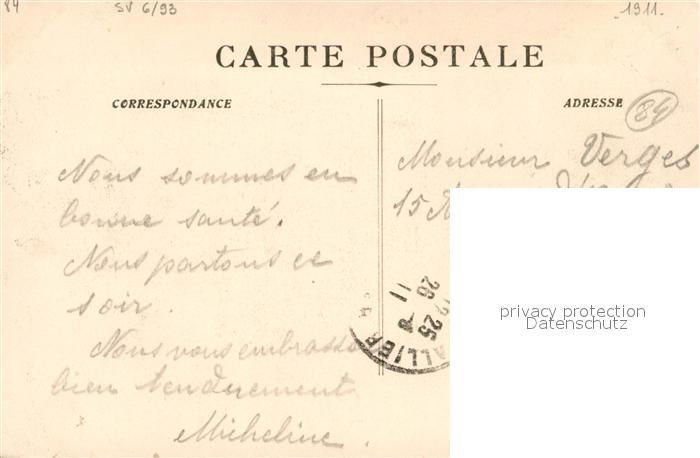 84
SV 6/93
1911.
CARTE POSTALE
CORRESPONDANCE
ADRESSE
84
Nous sommes en
bonne santé.
Nous partons ce
soir.
Nous vous embrassons
bien tendrement
Micheline.
Monsieur Verges
15
12 25
26 - 8
11
ALLIER
privacy protection
Datenschutz